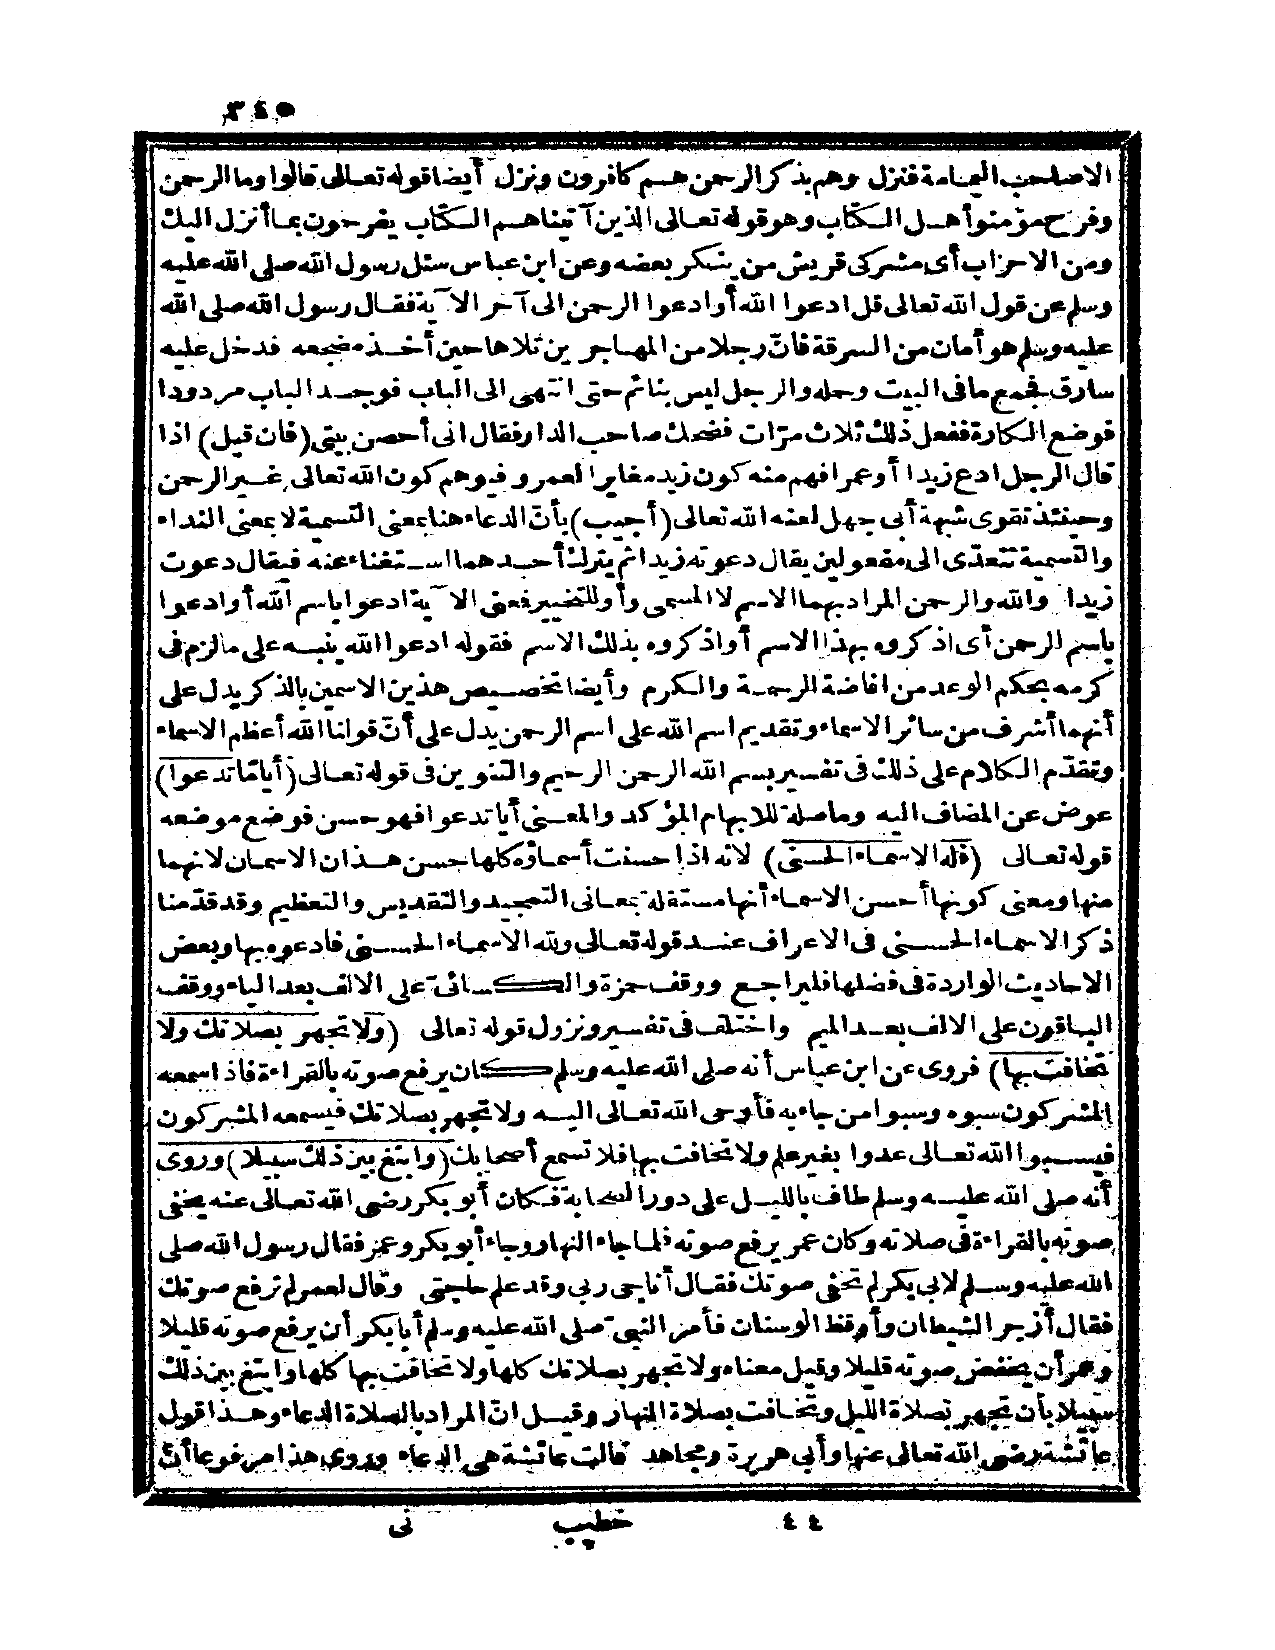 ٣٤٥
الا صاحب اليمامة فنزل وهم بذكر الرحمن هم كافرون ونزل أيضا قوله تعالى قالوا وما الرحمن
وفرح مؤمنو أهل الكتاب وهو قوله تعالى الذين آتيناهم الكتاب يفرحون بما أنزل اليك
ومن الاحزاب أى مشركى قريش من ينكر بعضه وعن ابن عباس سئل رسول الله صلى الله عليه
وسلم عن قول الله تعالى قل ادعوا الله أو ادعوا الرحمن الى آخر الآية فقال رسول الله صلى الله
عليه وسلم هو أمان من السرقة فانّ رجلا من المهاجرين تلاها حين أخذ مضجعه فدخل عليه
سارق فجمع ما فى البيت وحمله والرجل ليس بنائم حتى انتهى الى الباب فوجد الباب مردودا
فوضع الكارة ففعل ذلك ثلاث مرّات فضحك صاحب الدار فقال انى أحصن بيتى (فان قيل) اذا
قال الرجل ادع زيدا أو عمرا فهم منه كون زيد مغايرا لعمرو فيوهم كون الله تعالى غير الرحمن
وحينئذ تقوى شبهة أبى جهل لعنه الله تعالى (أجيب) بأنّ الدعاء هنا بمعنى التسمية لا بمعنى النداء
والتسمية تتعدّى الى مفعولين يقال دعوته زيدا ثم يترك أحدهما استغناء عنه فيقال دعوت
زيدا والله والرحمن المراد بهما الاسم لا المسمى وأو للتخيير فمعنى الآية ادعوا باسم الله أو ادعوا
باسم الرحمن أى اذكروه بهذا الاسم أو اذكروه بذلك الاسم فقوله ادعوا الله ينبه على ما لزم فى
كرمه بحكم الوعد من افاضة الرحمة والكرم وأيضا تخصيص هذين الاسمين بالذكر يدل على
أنهما أشرف من سائر الاسماء وتقديم اسم الله على اسم الرحمن يدل على أنّ قولنا الله أعظم الاسماء
وتقدّم الكلام على ذلك فى تفسير بسم الله الرحمن الرحيم والتنوين فى قوله تعالى (أيامّا تدعوا)
عوض عن المضاف اليه وما صلة للابهام المؤكد والمعنى أيا تدعوا فهو حسن فوضع موضعه
قوله تعالى (فله الاسماء الحسنى) لانه اذا حسنت أسماؤه كلها حسن هذان الاسمان لانهما
منها ومعنى كونها أحسن الاسماء أنها مستقلة بمعانى التمجيد والتقديس والتعظيم وقد قدّمنا
ذكر الاسماء الحسنى فى الاعراف عند قوله تعالى ولله الاسماء الحسنى فادعوه بها وبعض
الاحاديث الواردة فى فضلها فليراجع ووقف حمزة والكسائىّ على الالف بعد الياء ووقف
الباقون على الالف بعد الميم واختلف فى تفسير ونزول قوله تعالى (ولا تجهر بصلاتك ولا
تخافت بها) فروى عن ابن عباس أنه صلى الله عليه وسلم كان يرفع صوته بالقراءة فاذا سمعه
المشركون سبوه وسبوا من جاء به فأوحى الله تعالى اليه ولا تجهر بصلاتك فيسمعه المشركون
فيسبوا الله تعالى عدوا بغير علم ولا تخافت بها فلا تسمع أصحابك (وابتغ بين ذلك سبيلا) وروى
أنه صلى الله عليه وسلم طاف بالليل على دور الصحابة فكان أبو بكر رضى الله تعالى عنه يخفى
صوته بالقراءة فى صلاته وكان عمر يرفع صوته فلما جاء النهار وجاء أبو بكر وعمر فقال رسول الله صلى
الله عليه وسلم لابى بكر لم تخفى صوتك فقال أناجى ربى وقد علم حاجتى وقال لعمر لم ترفع صوتك
فقال أزجر الشيطان وأوقظ الوسنان فأمر النبىّ صلى الله عليه وسلم أبا بكر أن يرفع صوته قليلا
وعمر أن يخفض صوته قليلا وقيل معناه ولا تجهر بصلاتك كلها ولا تخافت بها كلها وابتغ بين ذلك
سبيلا بأن تجهر بصلاة الليل وتخافت بصلاة النهار وقيل انّ المراد بالصلاة الدعاء وهذا قول
عائشة رضى الله تعالى عنها وأبى هريرة ومجاهد قالت عائشة هى الدعاء وروى هذا مرفوعا أنّ
٤٤ خطيب نى